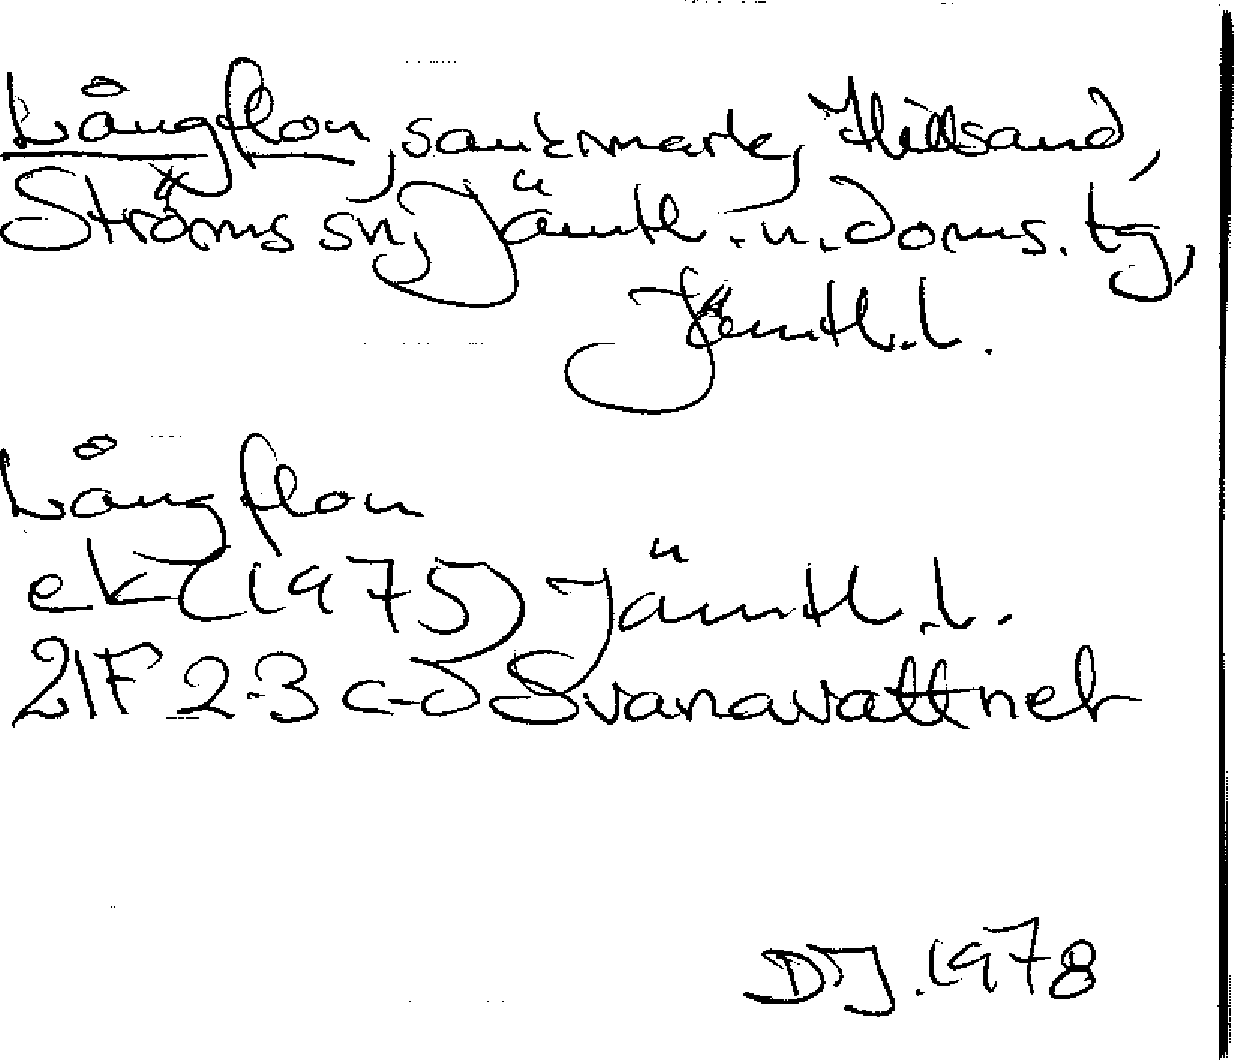 Långflon, sankmark, Hillsand,
Ströms sn, Jämtl. n. doms. tg,
Jämtl. l.
Långflon
ek (1975) Jämtl. l.
21F 2-3 c-d Svanavattnet
DJ. 1978